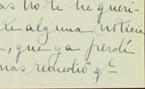 as no te he queri-
te alguna noticia
, que ya perdón
mas remedio q^e